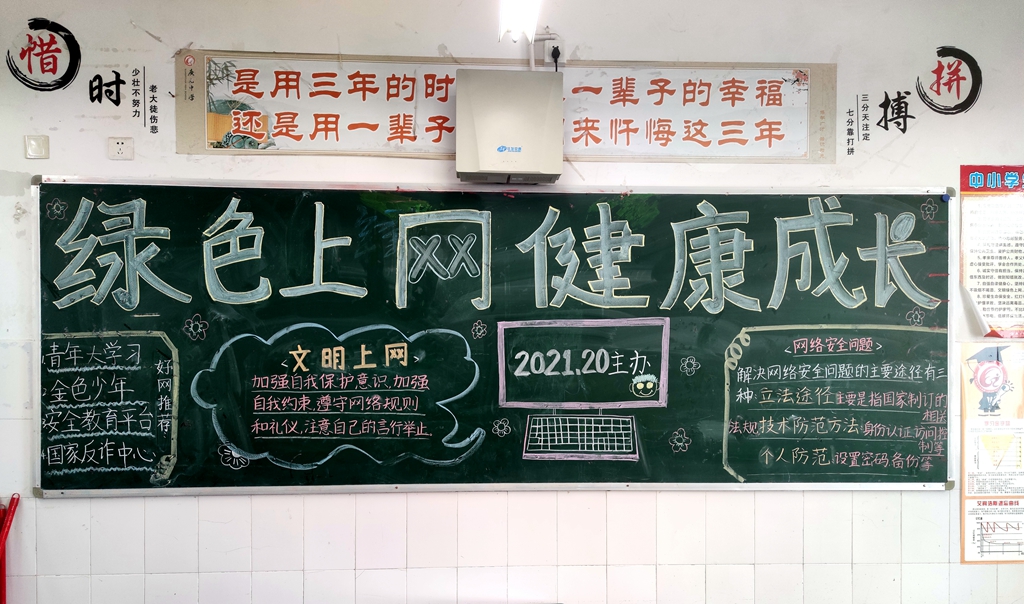 惜
时
少壮不努力
老大徒伤悲
是用三年的时
一辈子的幸福
还是用一辈子
来忏悔这三年
拼
搏
三分天注定
七分靠打拼
中小学
绿色上网健康成长
好网推荐
青年大学习
金色少年
安全教育平台
国家反诈中心
<文明上网>
加强自我保护意识,加强
自我约束,遵守网络规则
和礼仪,注意自己的言行举止
2021.20主办
<网络安全问题>
解决网络安全问题的主要途径有三
种:立法途径主要是指国家制订的
相关
法规技术防范方法身份认证访问控
制等
个人防范设置密码备份等